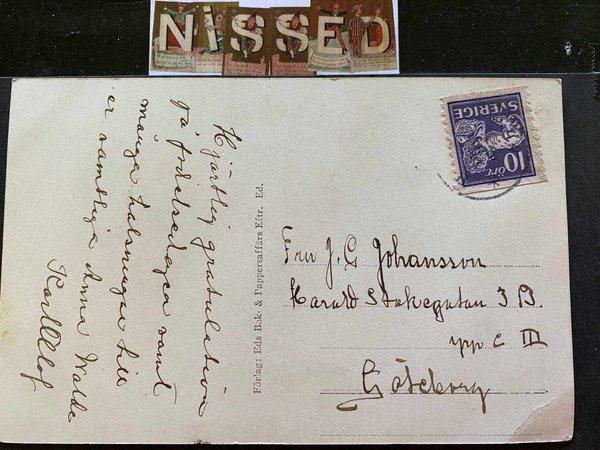 NISSED
Hjärtlig gratulation
på födelsedagen samt
många hälsningar till
er samtliga Anna Valde
Karl Olof
Förlag: Eds Bok- & Pappersaffärs Eftr. Ed.
SVERIGE
10 ÖRE
Fru J. G Johansson
Harald Stakegatan 3 B.
upp C III
Göteborg